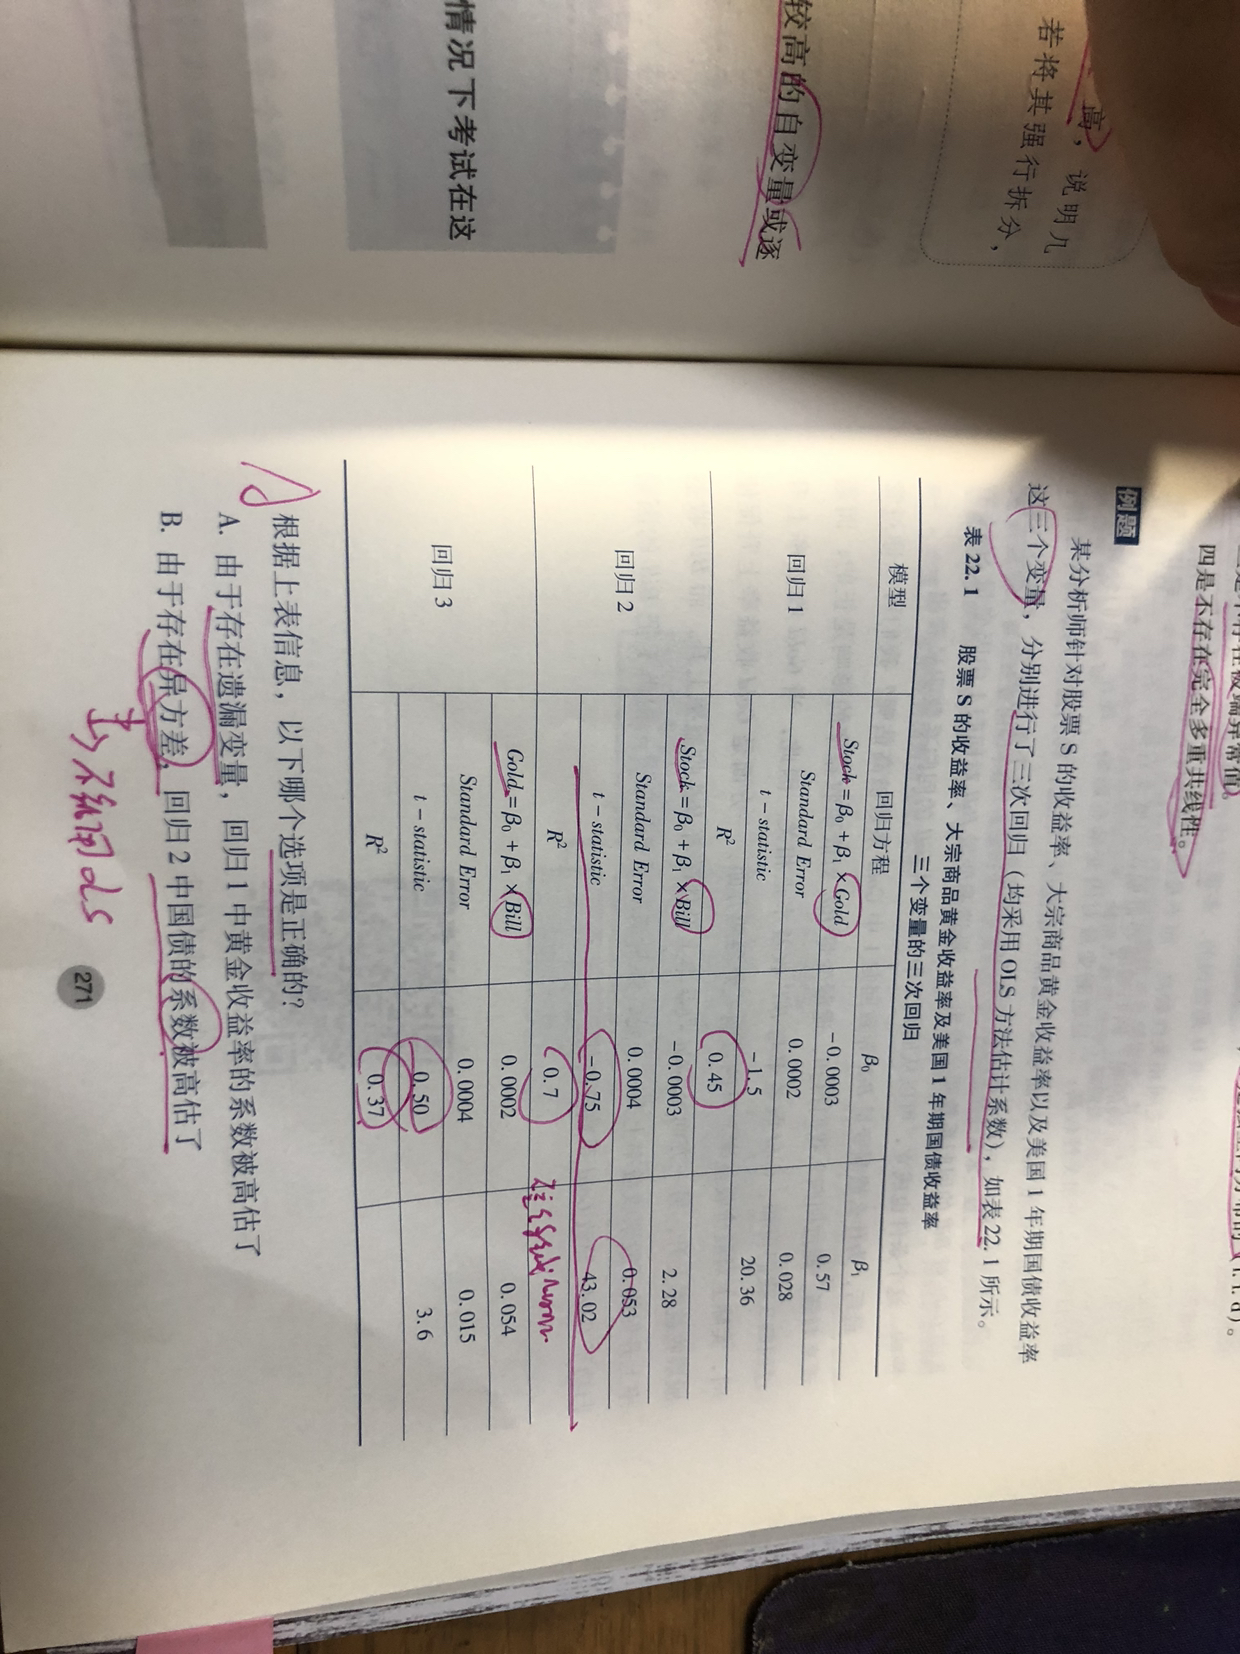 高，说明几
若将其强行拆分，
较高的自变量或逐
情况下考试在这
四是不存在完全多重共线性。
例题
某分析师针对股票 S 的收益率、大宗商品黄金收益率以及美国 1 年期国债收益率
这三个变量，分别进行了三次回归（均采用 OLS 方法估计系数），如表 22.1 所示。
表 22.1 股票 S 的收益率、大宗商品黄金收益率及美国 1 年期国债收益率
三个变量的三次回归
模型 回归方程 β₀ β₁
回归 1 Stock = β₀ + β₁ × Gold -0.0003 0.57
Standard Error 0.0002 0.028
t - statistic -1.5 20.36
R² 0.45
回归 2 Stock = β₀ + β₁ × Bill -0.0003 2.28
Standard Error 0.0004 0.053
t - statistic -0.75 43.02
R² 0.7
回归 3 Gold = β₀ + β₁ × Bill 0.0002 0.054
Standard Error 0.0004 0.015
t - statistic 0.50 3.6
R² 0.37
根据上表信息，以下哪个选项是正确的？
A. 由于存在遗漏变量，回归 1 中黄金收益率的系数被高估了
B. 由于存在异方差，回归 2 中国债的系数被高估了
271